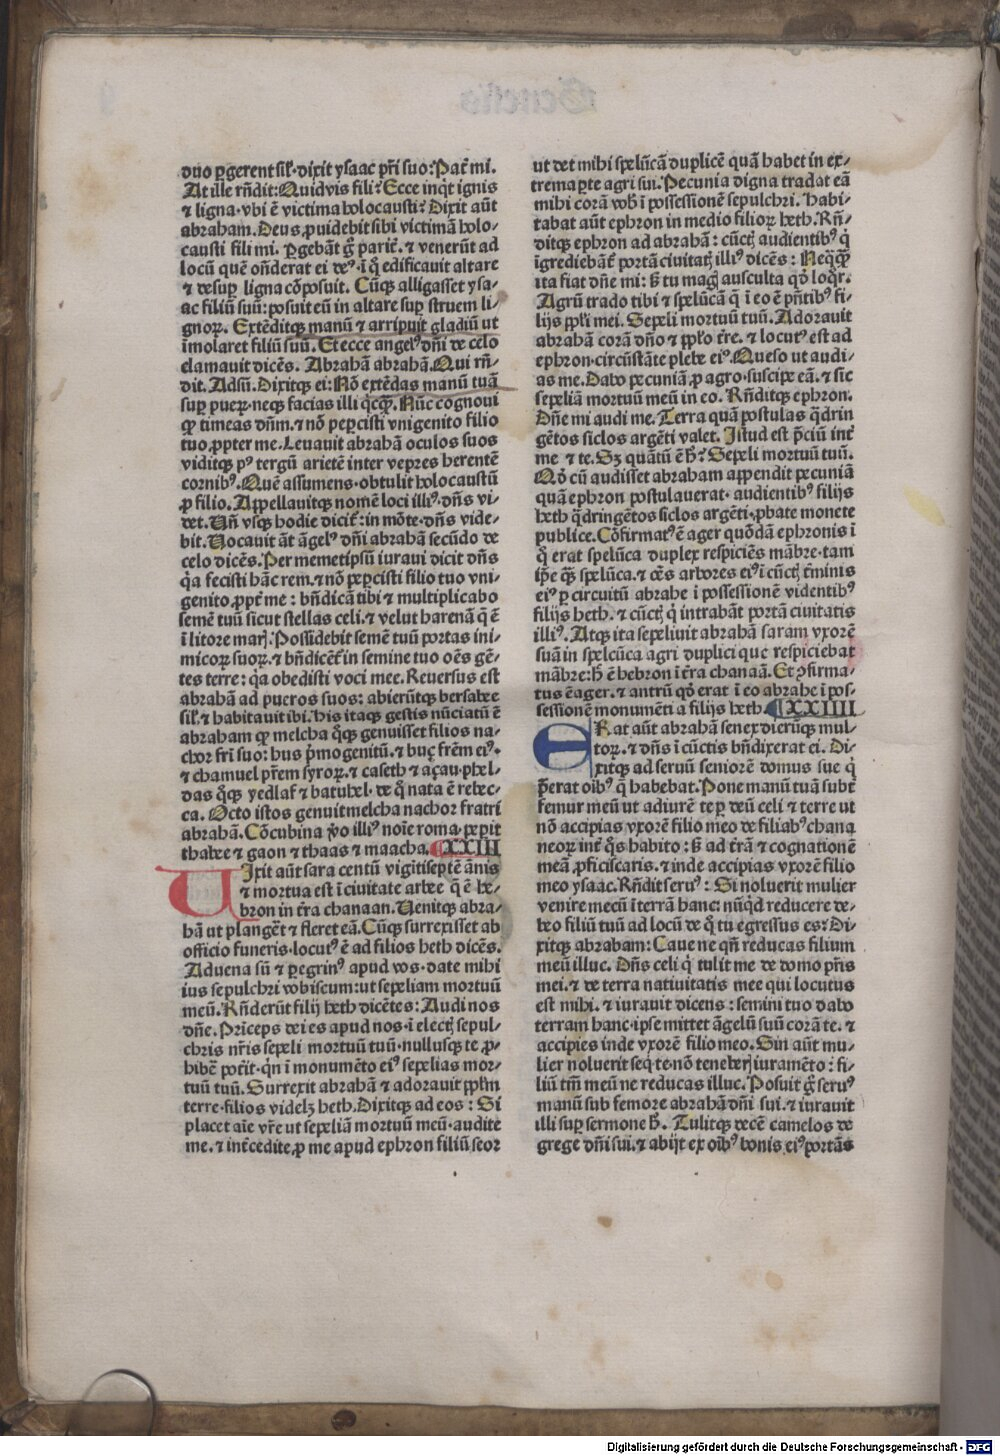 duo pgerent sil᷒·dixit ysaac pr̃i suo:Pat̃ mi.
At ille rñdit:Quid vis fili? Ecce inqt̃ ignis
⁊ ligna·vbi ē victima holocausti? Dixit aūt
abraham.Deus ꝓuidebit sibi victimā holo⸗
causti fili mi. Pgebāt g̊ parit̃. ⁊ venerūt ad
locū quē oñderat ei deꝰ·ī q̊ edificauit altare
⁊ desup ligna cōposuit. Cūqꝫ alligasset ysa⸗
ac filiū suū:posuit eū in altare sup struem li⸗
gnoꝝ. Extēditqꝫ manū ⁊ arripuit gladiū ut
īmolaret filiū suū. Et ecce angelꝰ dñi de celo
clamauit dicēs. Abrahā abrahā.Qui rñ⸗
dit. Adsū. Dixitqꝫ ei:Nō extēdas manū tuā
sup pueꝝ·neqꝫ facias illi qͥcqꝙ.Nūc cognoui
ꝙ timeas dñm.⁊ nō pepcisti vnigenito filio
tuo ꝓpter me.Leuauit abrahā oculos suos
viditqꝫ pꝰ tergū arietē inter vepres herentē
cornibꝰ.Quē assumens·obtulit holocaustū
ꝓ filio.Appellauitqꝫ nomē loci illiꝰ·dñs vi⸗
det.Uñ vsqꝫ hodie dicit᷑:in mōte·dñs vide⸗
bit.Uocauit āt āgelꝰ dñi abrahā secūdo de
celo dicēs.Per memetipsū iuraui dicit dñs
qͥa fecisti hāc rem.⁊ nō pepcisti filio tuo vni⸗
genito ꝓpt̃ me: bñdicā tibi ⁊ multiplicabo
semē tuū sicut stellas celi.⁊ velut harenā q̄ ē
ī litore marꝭ.Possidebit semē tuū portas ini⸗
micoꝝ suoꝝ.⁊ bñdicēt᷑ in semine tuo oēs gē⸗
tes terre: qͥa obedisti voci mee. Reuersus est
abrahā ad pueros suos: abierūtqꝫ bersabee
sil᷒·⁊ habitauit ibi.His itaqꝫ gestis nūciatū ē
abraham ꝙ melcha qͦqꝫ genuisset filios na⸗
chor fr̄i suo: hus pͥmogenitū.⁊ buç fr̄em eiꝰ·
⁊ chamuel pr̄em syroꝝ.⁊ caseth ⁊ açau·phel⸗
das qͦqꝫ yedlaf ⁊ batuhel·de q̊ nata ē rebec⸗
ca.Octo istos genuit melcha nachor fratri
abrahā. Cōcubina ꝟo illiꝰ noīe roma·pepit
thabee ⁊ gaon ⁊ thaas ⁊ maacha. XXIII
Uixit aūt sara centū vigītiseptē ānis
⁊ mortua est ī ciuitate arbee q̄ ē he⸗
bron in t̃ra chanaan.Uenitqꝫ abra⸗
hā ut plangēt ⁊ fleret eā.Cūqꝫ surrexisset ab
officio funeris·locutꝰ ē ad filios heth dicēs.
Aduena sū ⁊ pegrinꝰ apud vos·date mihi
ius sepulchri vobiscum:ut sepeliam mortuū
meū.Rñderūt filij heth dicētes: Audi nos
dñe.Prīceps dei es apud nos·ī electꝭ sepul⸗
chris nr̄is sepeli mortuū tuū·nullusqꝫ te ꝓ⸗
hibē potit·qͥn ī monumēto eiꝰ sepelias mor⸗
tuū tuū. Surrexit abrahā ⁊ adorauit pplm̄
terre·filios videlꝫ heth.Dixitqꝫ ad eos: Si
placet aīe vr̄e ut sepeliā mortuū meū·audite
me.⁊ int̃cedite ꝓ me apud ephron filiū seor
ut det mihi spelūcā duplicē quā habet in ex⸗
trema pte agri sui.Pecunia digna tradat eā
mihi corā vob̄ ī possessionē sepulchri. Habi⸗
tabat aūt ephron in medio filioꝝ heth. Rñ⸗
ditqꝫ ephron ad abrahā: cūctꝭ audientibꝰ qͥ
īgrediebāt᷑ portā ciuitatꝭ illiꝰ dicēs: Neqꝙ̄
ita fiat dñe mi:s̄ tu magꝭ ausculta qͦ loqͦr.
Agrū trado tibi ⁊ spelūcā q̄ ī eo ē pñtibꝰ fi⸗
lijs ppli mei. Sepeli mortuū tuū. Adorauit
abrahā corā dño ⁊ pplo t̃re. ⁊ locutꝰ est ad
ephron·circūstāte plebe eiꝰ.Queso ut audi⸗
as me.Dabo pecuniā ꝓ agro·suscipe eā.⁊ sic
sepeliā mortuū meū in eo. Rñditqꝫ ephron.
Dñe mi audi me.Terra quā postulas qͣdrin
gētos siclos argēti valet. Istud est p̄ciū int̃
me ⁊ te. Sꝫ quātū ē h̄? Sepeli mortuū tuū.
Qd̓ cū audisset abraham appendit pecuniā
quā ephron postulauerat·audientibꝰ filijs
heth qͣdringētos siclos argēti·ꝓbate monete
publice.Cōfirmatꝰ ē ager quōdā ephronis ī
q̊ erat spelūca duplex respiciēs mābre·tam
ip̄e qꝙ̄ spelūca.⁊ oēs arbores eiꝰ ī cūctꝭ t̃minis
eiꝰ p circuitū abrahe ī possessionē videntibꝰ
filijs heth.⁊ cūctꝭ qͥ intrabāt portā ciuitatis
illiꝰ. Atqꝫ ita sepeliuit abrahā saram vxorē
suā in spelūca agri duplici que respiciebat
mābre:h̄ ē hebron ī t̃ra chanaā. Et ꝯfirma⸗
tus ē ager.⁊ antrū qd̓ erat ī eo abrahe ī pos⸗
sessionē monumēti a filijs heth. XXIIII
ERat aūt abrahā senex dierūqꝫ mul⸗
toꝝ.⁊ dñs ī cūctis bñdixerat ei. Di⸗
xitqꝫ ad seruū seniorē domus sue qͥ
p̄erat oībꝰ q̄ habebat.Pone manū tuā subt̃
femur meū ut adiurē te p deū celi ⁊ terre ut
nō accipias vxorē filio meo de filiabꝰ chana
neoꝝ int̃ qͦs habito: s̄ ad t̃rā ⁊ cognationē
meā ꝓficiscaris.⁊ inde accipias vxorē filio
meo ysaac.Rñdit seruꝰ: Si noluerit mulier
venire mecū ī terrā hanc:nūqͥd reducere de⸗
beo filiū tuū ad locū de q̊ tu egressus es? Di⸗
xitqꝫ abraham: Caue ne qñ reducas filium
meū illuc. Dñs celi qͥ tulit me de domo pr̄is
mei.⁊ de terra natiuitatis mee qui locutus
est mihi.⁊ iurauit dicens: semini tuo dabo
terram hanc·ipse mittet āgelū suū corā te.⁊
accipies inde vxorē filio meo. Sin aūt mu⸗
lier noluerit seqͥ te·nō teneberꝭ iuramēto: fi⸗
liū tm̄ meū ne reducas illuc. Posuit g̊ seruꝰ
manū sub femore abrahā dñi sui.⁊ iurauit
illi sup sermone h̄. Tulitqꝫ decē camelos de
grege dñi sui.⁊ abijt ex oībꝰ bonis eiꝰ portās
Digitalisierung gefördert durch die Deutsche Forschungsgemeinschaft - DFG